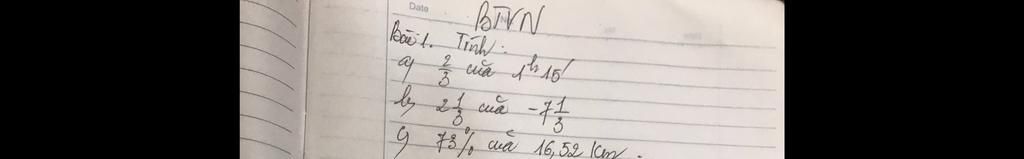 Date
BTVN
Bài 1. Tính:
a) 2/3 của 1h15'
b) 2 1/3 của -7 1/3
c) 73% của 16,52 km.